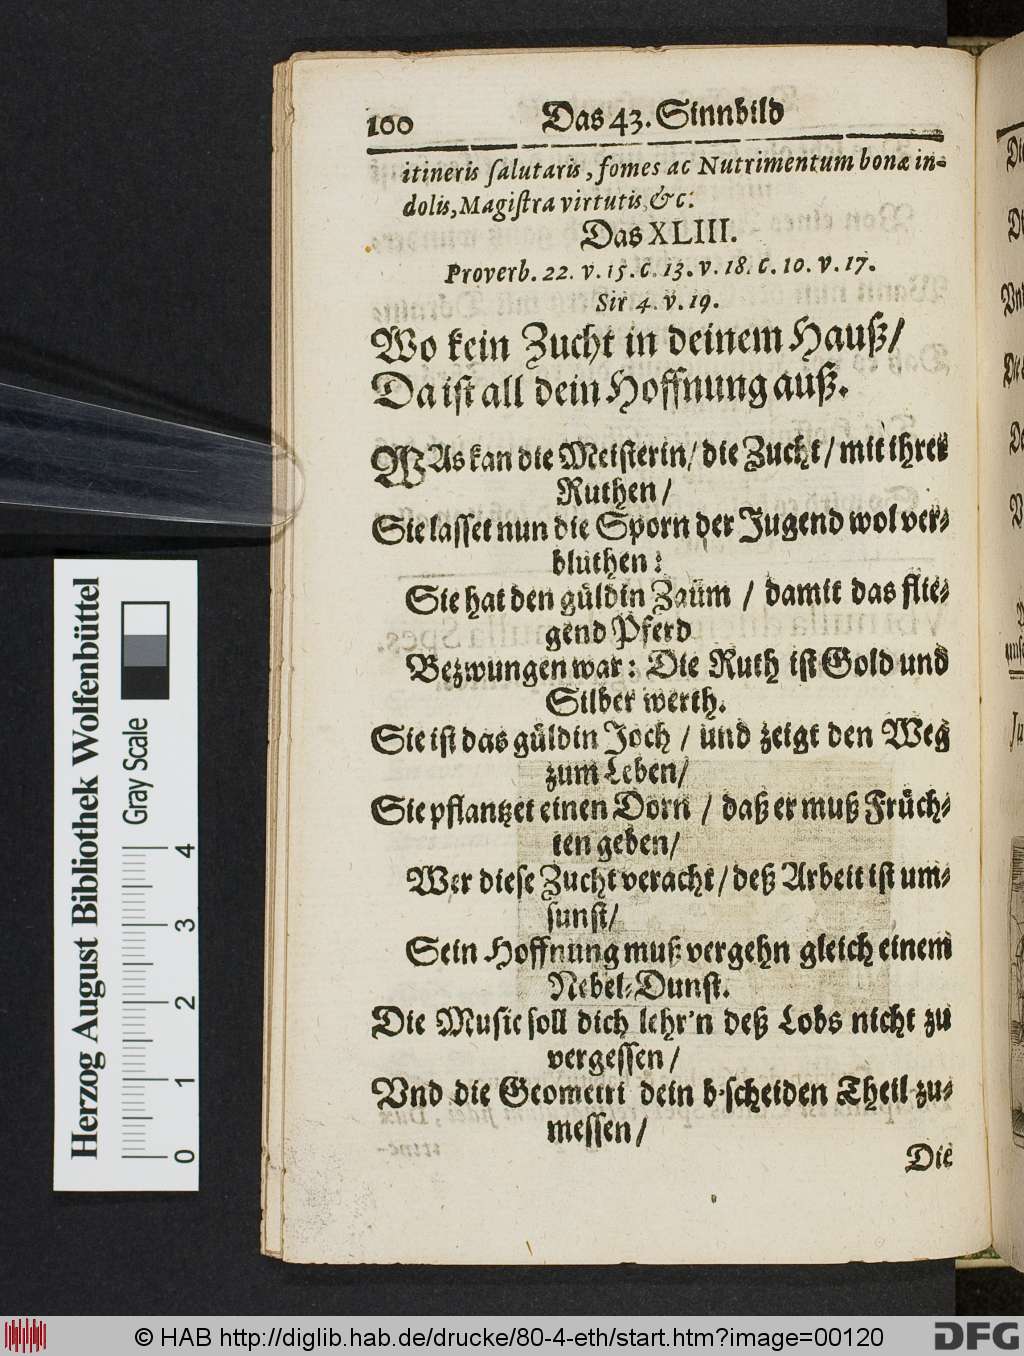 100 Das 43. Sinnbild
itineris salutaris, fomes ac Nutrimentum bonæ in-
dolis, Magistra virtutis, &c:
Das XLIII.
Proverb. 22. v. 15. c. 13. v. 18. c. 10. v. 17.
Sir 4. v. 19.
Wo kein Zucht in deinem Hauß/
Da ist all dein Hoffnung auß.
WAs kan die Meisterin/ die Zucht / mit ihrer
Ruthen /
Sie lasset nun die Sporn der Jugend wol ver-
bluthen:
Sie hat den güldin Zaüm / damit das flie-
gend Pferd
Bezwungen war: Die Ruth ist Gold und
Silber werth.
Sie ist das güldin Joch / und zeigt den Weg
zum Leben/
Sie pflantzet einen Dorn / daß er muß Früch-
ten geben/
Wer diese Zucht veracht / deß Arbeit ist um-
sunst/
Sein Hoffnung muß vergehn gleich einem
Nebel-Dunst.
Die Music soll dich lehr'n deß Lobs nicht zu
vergessen /
Vnd die Geometri dein b'scheiden Theil zu-
messen /
Die
Herzog August Bibliothek Wolfenbüttel
Gray Scale
0 1 2 3 4
© HAB http://diglib.hab.de/drucke/80-4-eth/start.htm?image=00120
DFG